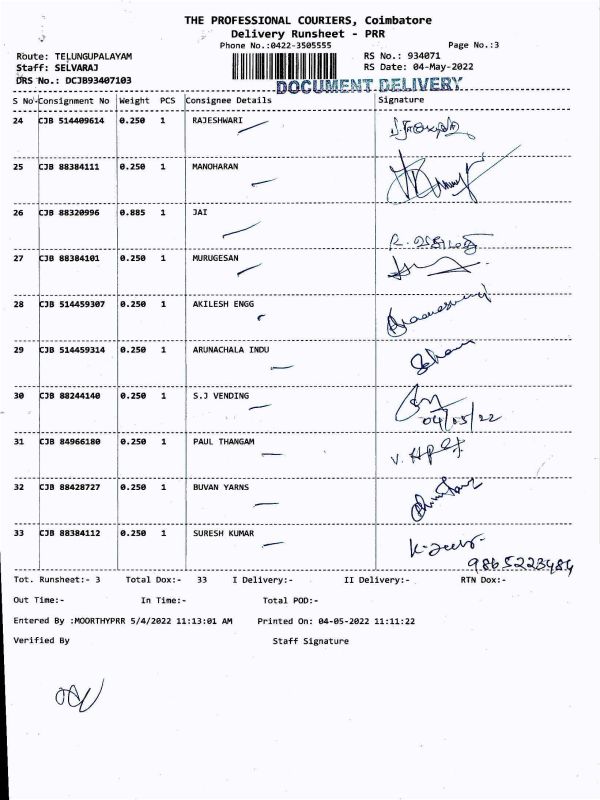 THE PROFESSIONAL COURIERS, Coimbatore
Delivery Runsheet - PRR
Phone No.:0422-3505555 Page No.:3
Route: TELUNGUPALAYAM RS No.: 934071
Staff: SELVARAJ RS Date: 04-May-2022
DRS No.: DCJB93407103 DOCUMENT DELIVERY
S No Consignment No Weight PCS Consignee Details Signature
24 CJB 514409614 0.250 1 RAJESHWARI
25 CJB 88384111 0.250 1 MANOHARAN
26 CJB 88320996 0.885 1 JAI
27 CJB 88384101 0.250 1 MURUGESAN
28 CJB 514459307 0.250 1 AKILESH ENGG
29 CJB 514459314 0.250 1 ARUNACHALA INDU
30 CJB 88244140 0.250 1 S.J VENDING
04/05/22
31 CJB 84966180 0.250 1 PAUL THANGAM
32 CJB 88428727 0.250 1 BUVAN YARNS
33 CJB 88384112 0.250 1 SURESH KUMAR
9865223484
Tot. Runsheet:- 3 Total Dox:- 33 I Delivery:- II Delivery:- RTN Dox:-
Out Time:- In Time:- Total POD:-
Entered By :MOORTHYPRR 5/4/2022 11:13:01 AM Printed On: 04-05-2022 11:11:22
Verified By Staff Signature